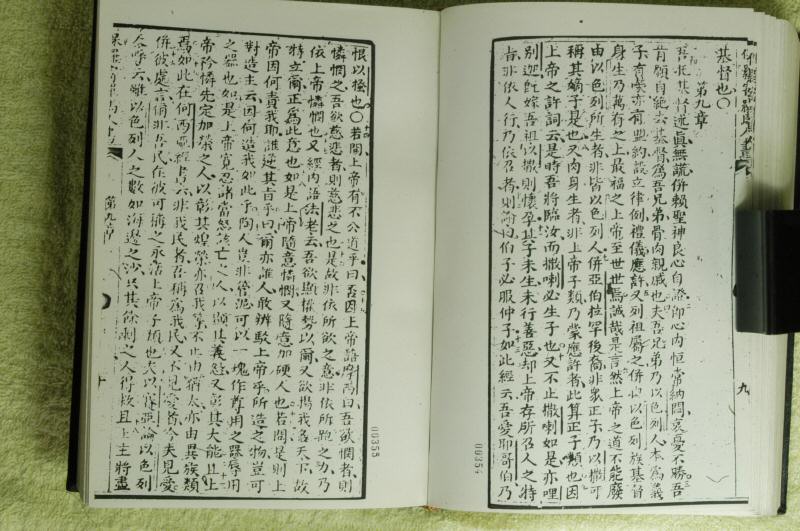 基督也○
第九章
吾託基督述眞無謊併賴聖神良心自證即心內恒常納悶哀憂不勝吾
肯願自絕于基督為吾兄弟骨肉親戚也夫吾兄弟乃以色列人本為義
子有榮亦有盟約設立律例禮儀應許又列祖屬之併由以色列族基督
身生乃萬有之上最福之上帝至世世焉誠哉是言然上帝之道不能廢
由以色列所生者非皆以色列人併亞伯拉罕後裔非衆正子乃以撒可
稱其嫡子是也又肉身生者非上帝子類乃蒙應許者此算正子類也因
上帝之許詞云是時吾將臨汝而撒喇必生子也又不止撒喇如是亦哩
別迦旣嫁吾祖以撒則懷孕其子未生未行善惡却上帝存所召人之特
者非依人行乃依召者則謂曰伯子必服仲子如此經云吾愛耶哥伯乃
九
00354
恨以掃也○若問上帝有不公道乎曰否因上帝語摩西曰吾欲憫者則
憐憫之吾欲慈悲者則慈悲之也是故非依所欲之意非依所跑之力乃
依上帝憐憫也又經內語法老云吾欲顯權勢以爾又欲揚我名天下故
特立爾正為此意也如是上帝隨意憐憫又隨意加硬人也若問是則上
帝因何責我耶誰逆其旨乎曰爾亦誰人敢辨駁上帝乎所造之物豈可
對造主云因何造我如此乎陶人豈非管泥可以一塊作尊用之器辱用
之器也如是上帝寬忍諸當怒該亡之人以顯其義怒又彰其大能且上
帝矜憐先定加榮之人以彰其煌榮亦召我等不止由猶太亦由異族類
焉如此在何西亞經書云非我民者吾稱為我民又不見愛者今夫見愛
併彼處言爾非吾民在彼可稱之永活上帝子類也夫以賽亞論以色列
呼云雖以色列人之數如海邊之沙止其餘剩之人得救且上主將盡
第九章
十
00355